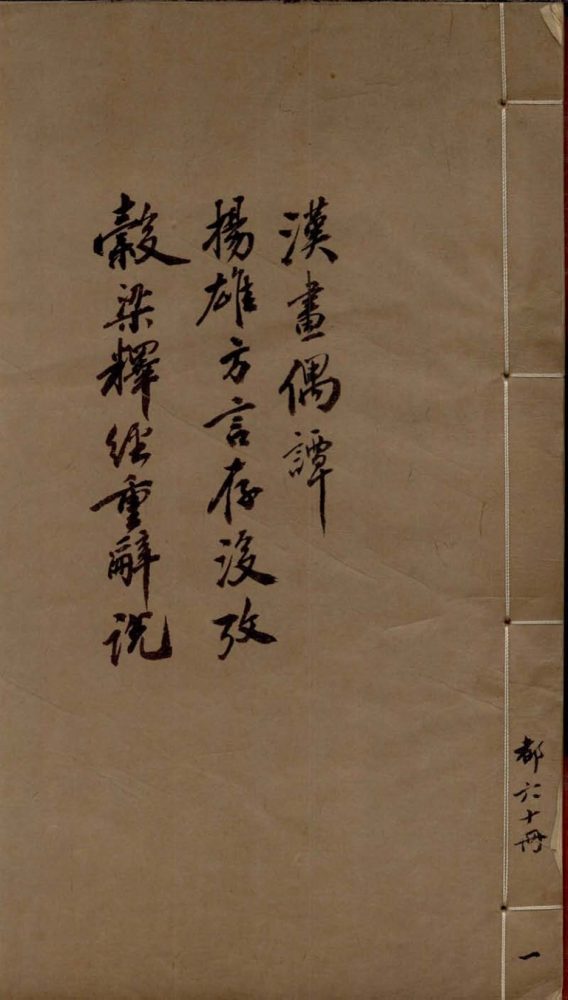 漢畫偶譚
揚雄方言存没攷
穀梁釋經重辭說
都六十冊
一